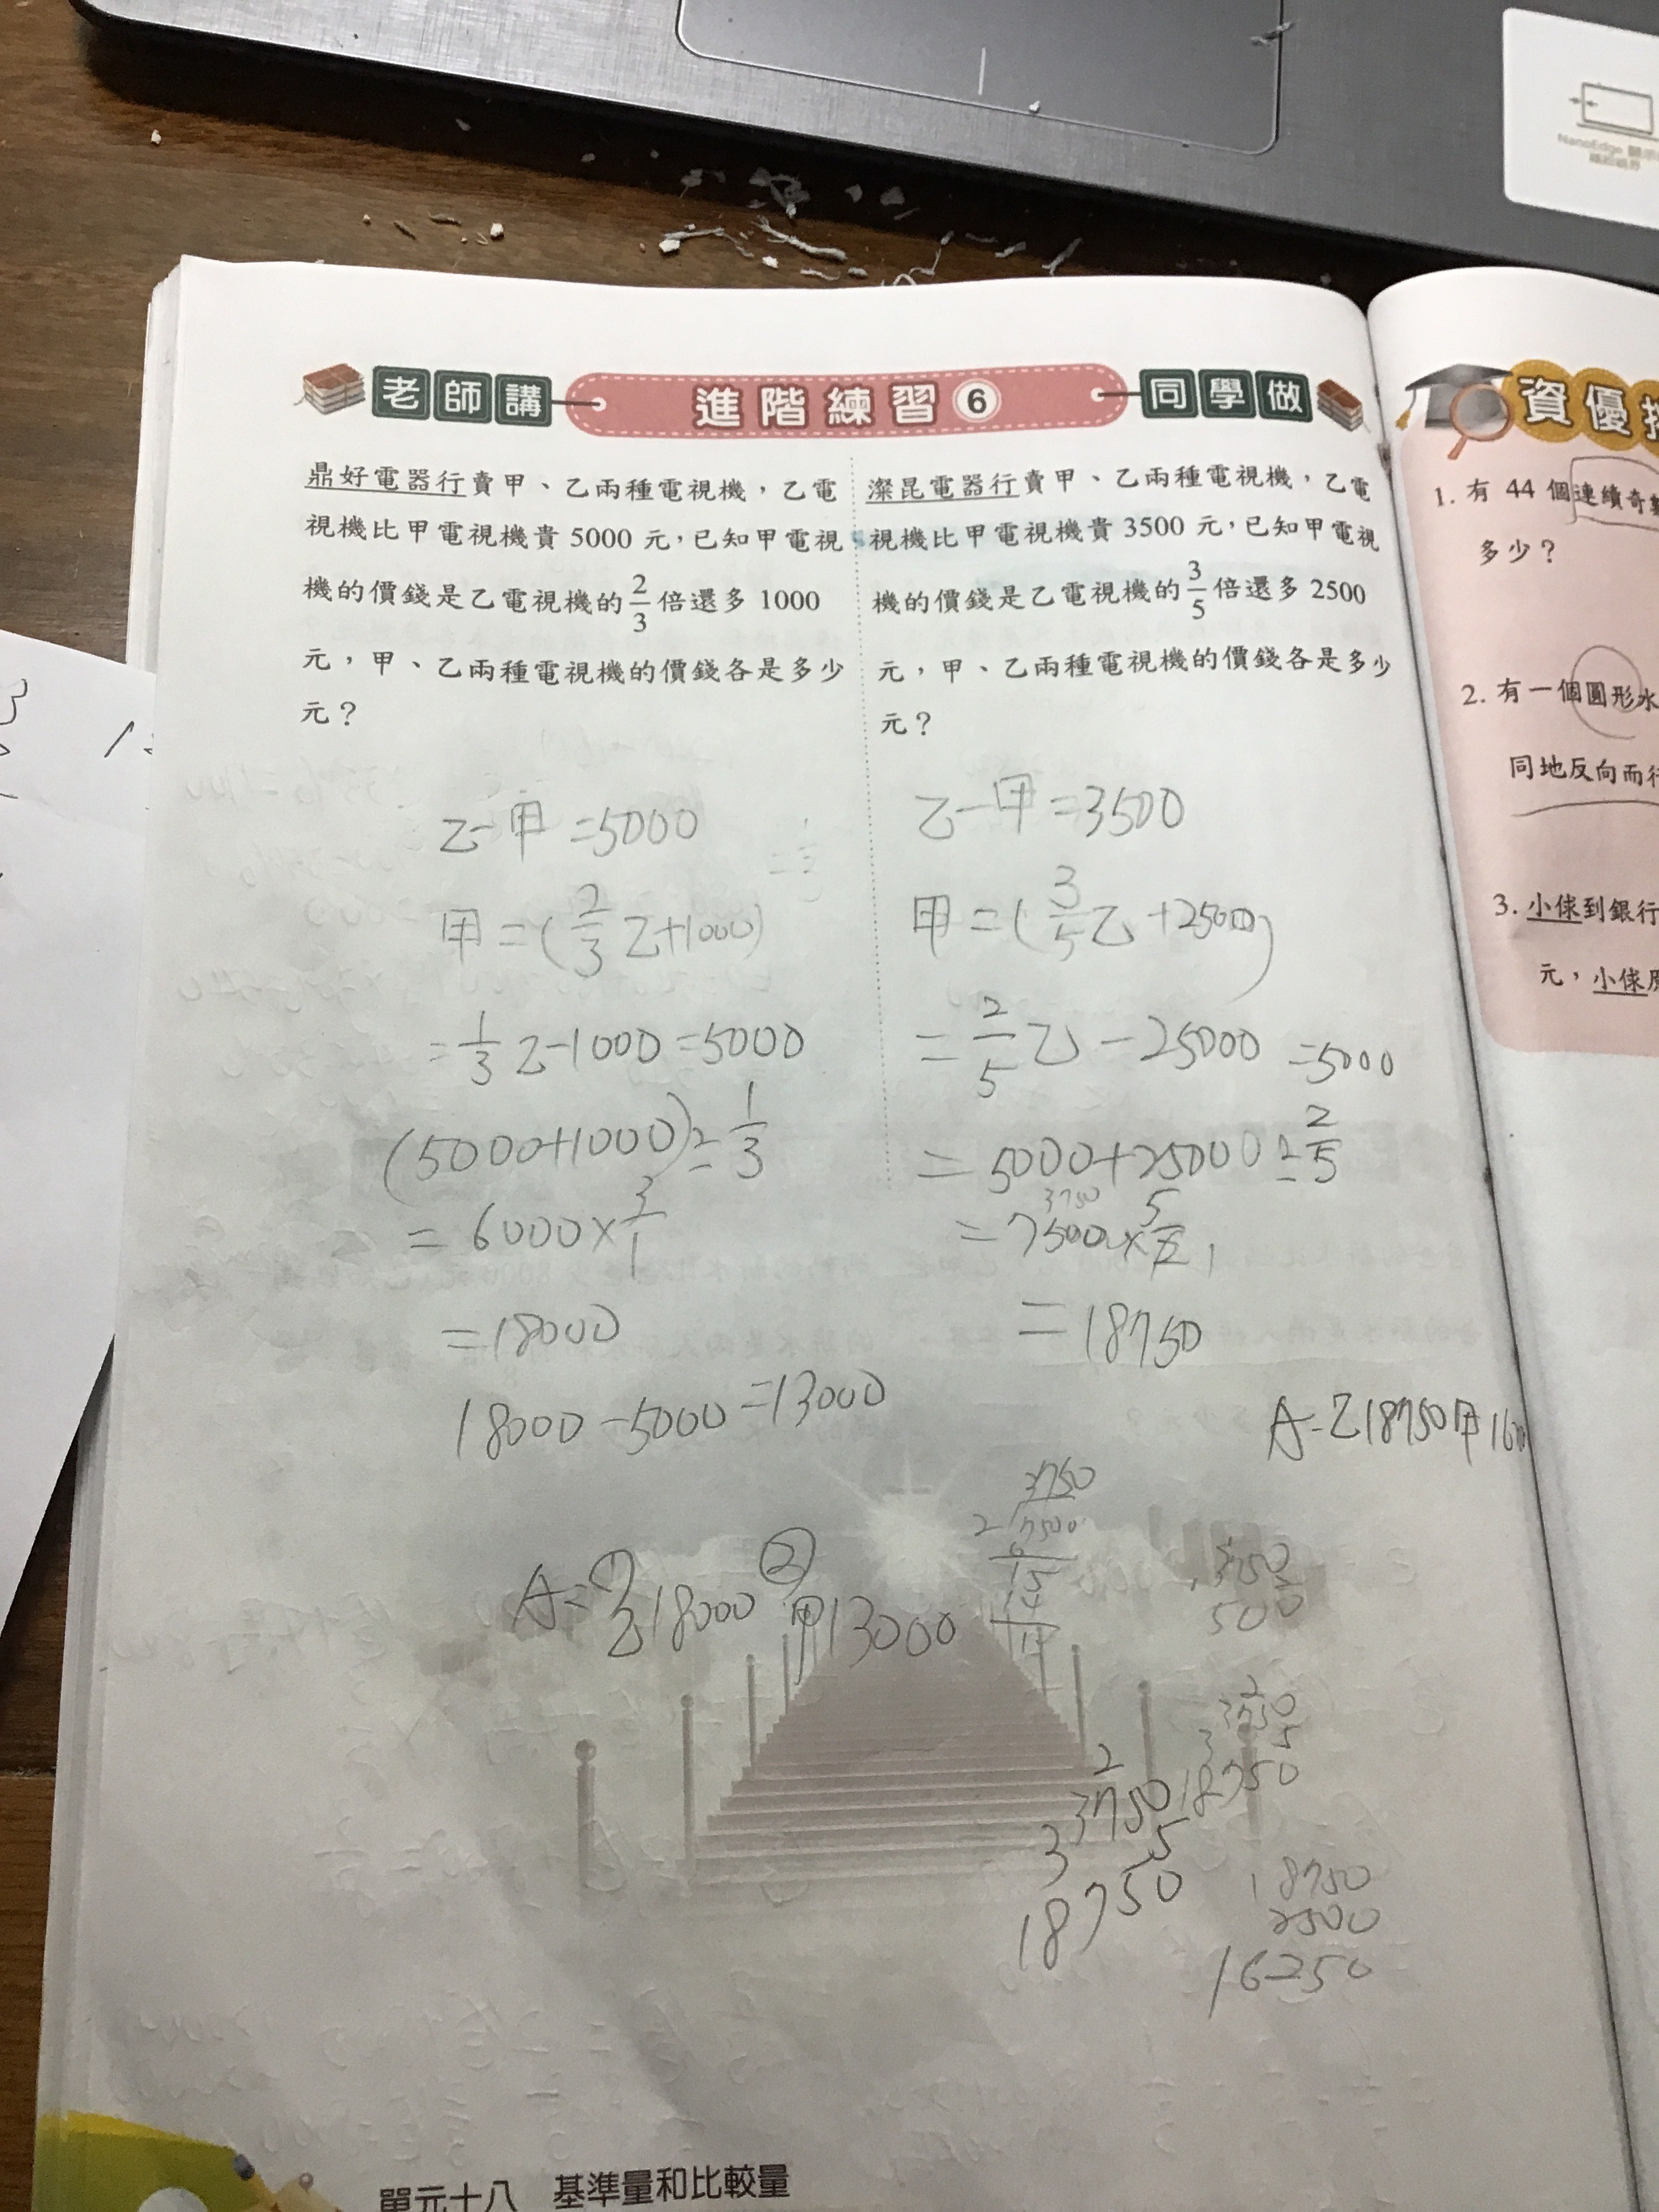 NanoEdge
老師講
進階練習 6
同學做
鼎好電器行賣甲、乙兩種電視機，乙電
視機比甲電視機貴 5000 元，已知甲電視
機的價錢是乙電視機的 2/3 倍還多 1000
元，甲、乙兩種電視機的價錢各是多少
元？
乙-甲=5000
甲=(2/3乙+1000)
=1/3乙-1000=5000
(5000+1000)÷1/3
=6000×3/1
=18000
18000-5000=13000
A=①乙18000②甲13000
澯昆電器行賣甲、乙兩種電視機，乙電
視機比甲電視機貴 3500 元，已知甲電視
機的價錢是乙電視機的 3/5 倍還多 2500
元，甲、乙兩種電視機的價錢各是多少
元？
乙-甲=3500
甲=(3/5乙+2500)
=2/5乙-25000=5000
=5000+25000÷2/5
3750
=7500×5/2 1
=18750
A=乙18750甲16
3750
2 7500
6
15
14
1
3750
500
2
3750
3 5
18750
2
3750
3 5
18750
18750
2500
16250
資優
1. 有 44 個連續奇
多少？
2. 有一個圓形水
同地反向而行
3. 小傢到銀行
元，小傢
單元十八 基準量和比較量